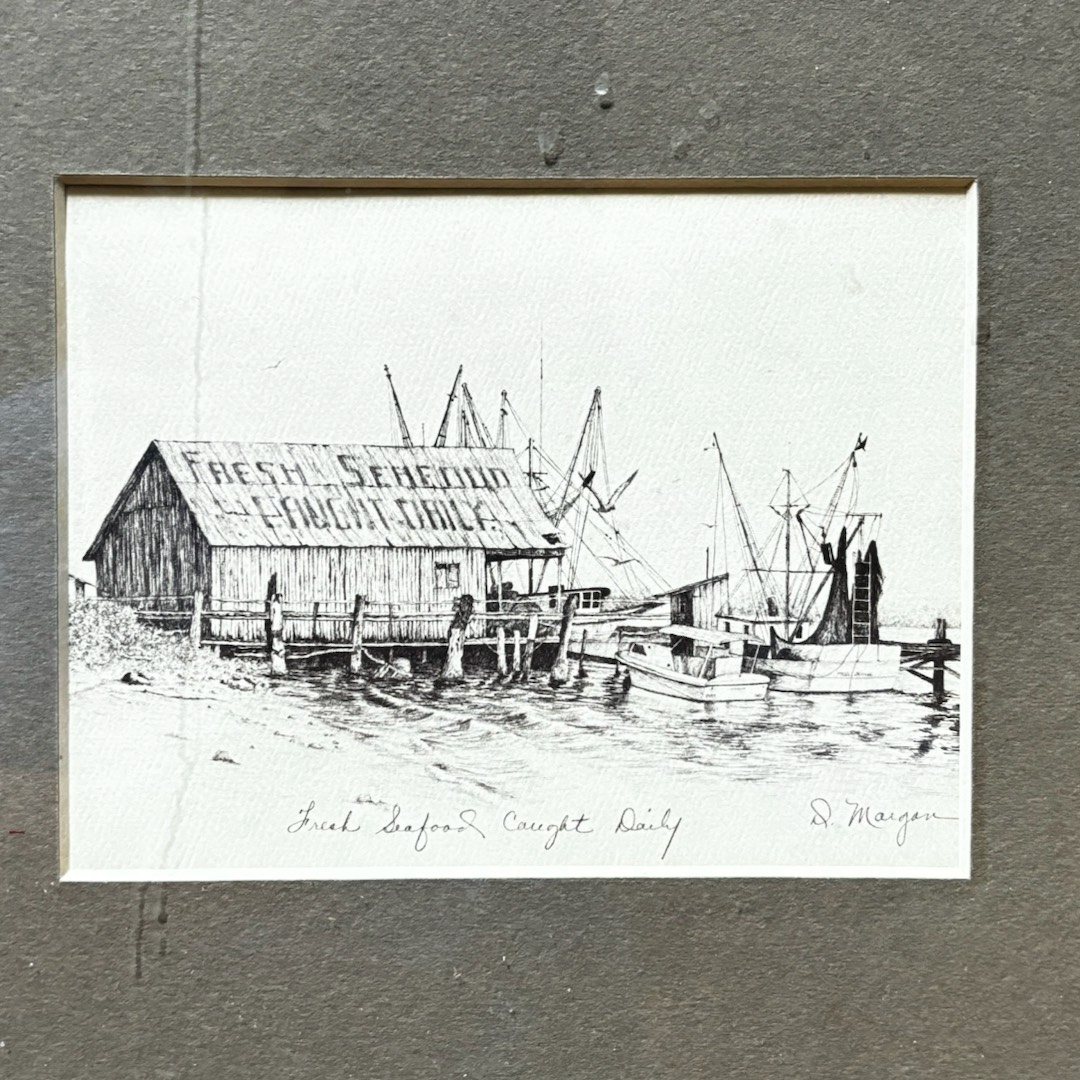 FRESH SEAFOOD
CAUGHT DAILY
Fresh Seafood Caught Daily
D. Morgan